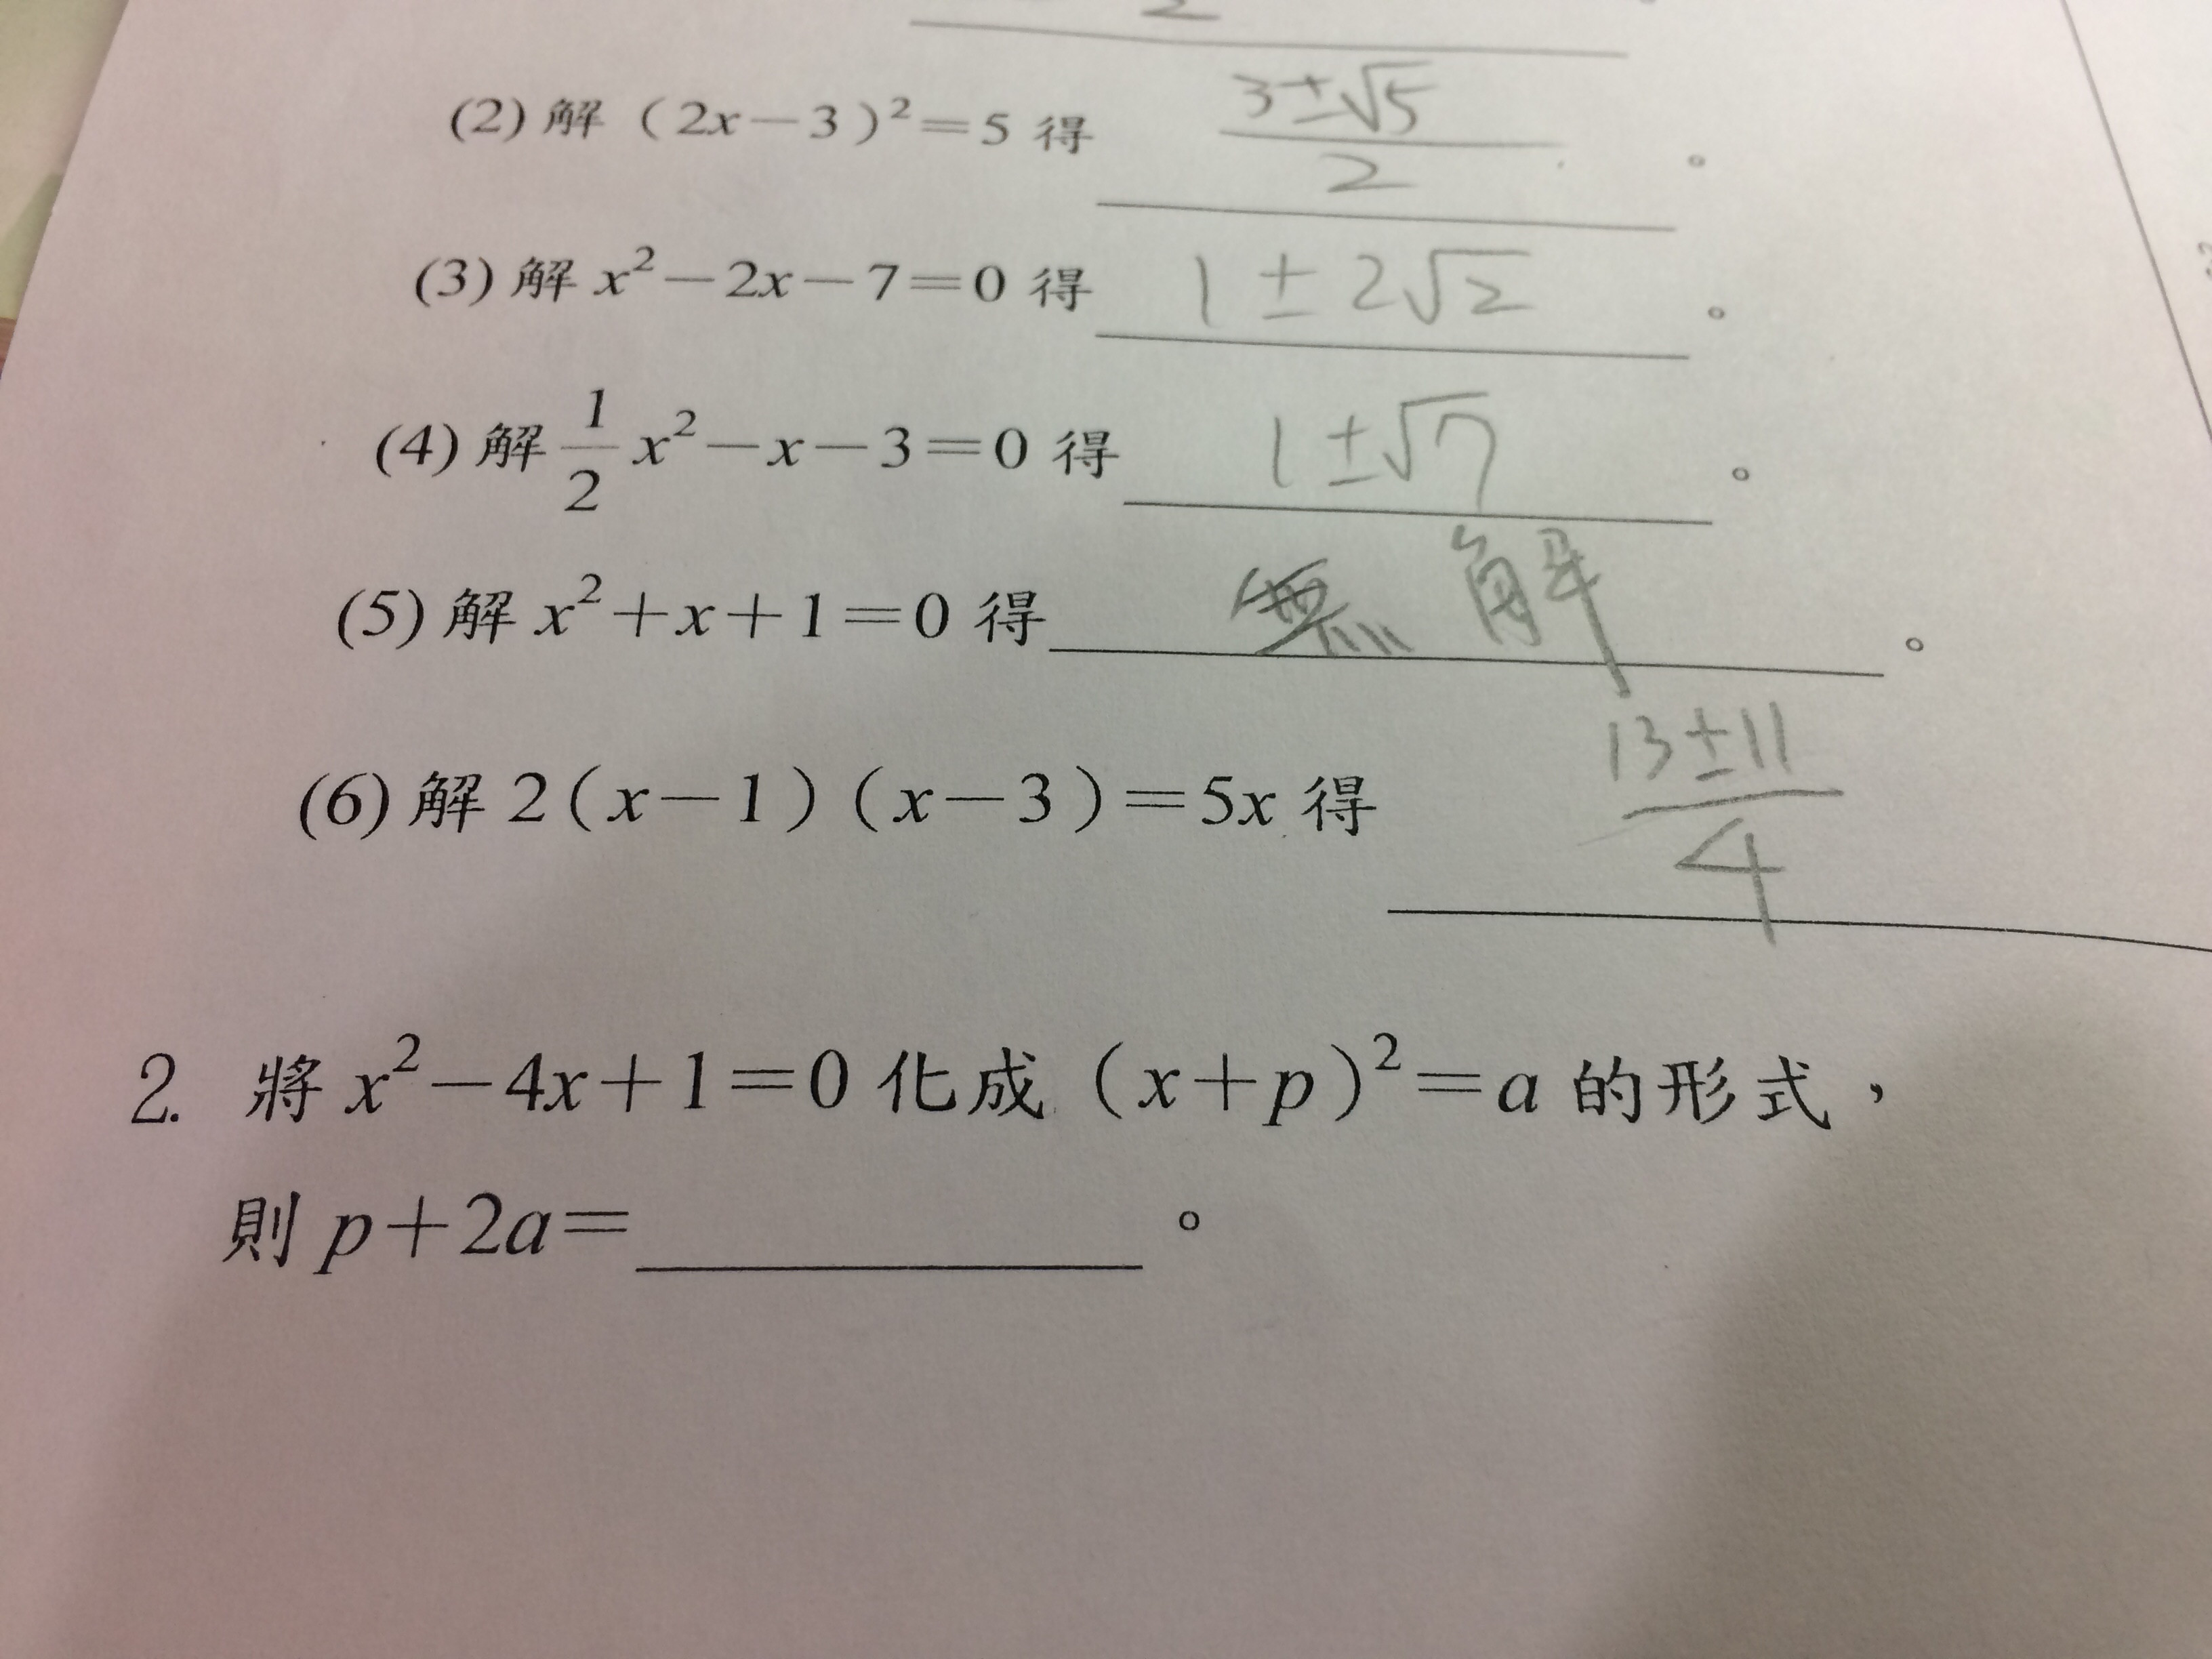 (2) 解（2x－3）²＝5 得 3±√5/2 。
(3) 解 x²－2x－7＝0 得 1±2√2 。
(4) 解 1/2 x²－x－3＝0 得 1±√7 。
(5) 解 x²＋x＋1＝0 得 無解 。
(6) 解 2（x－1）（x－3）＝5x 得 13±11/4
2. 將 x²－4x＋1＝0 化成（x＋p）²＝a 的形式，
則 p＋2a＝ 。